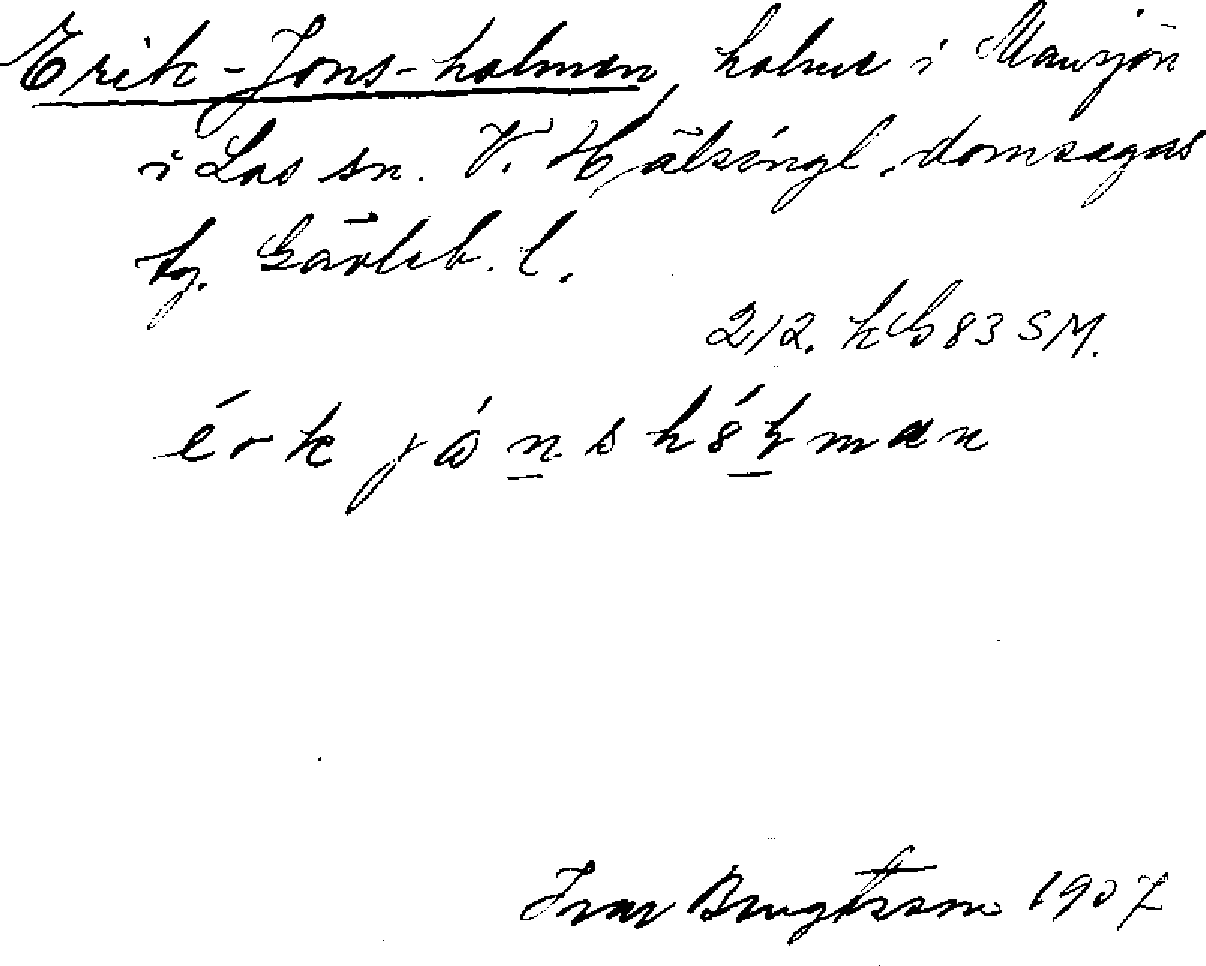 Erik-Jons-holmen, holme i Mansjön
i Los sn. V. Hälsingl. domsagas
tg. Gävleb. l.
212. kb 83 SM.
érk jónshóɫman
Ivar Bengtsson 1907